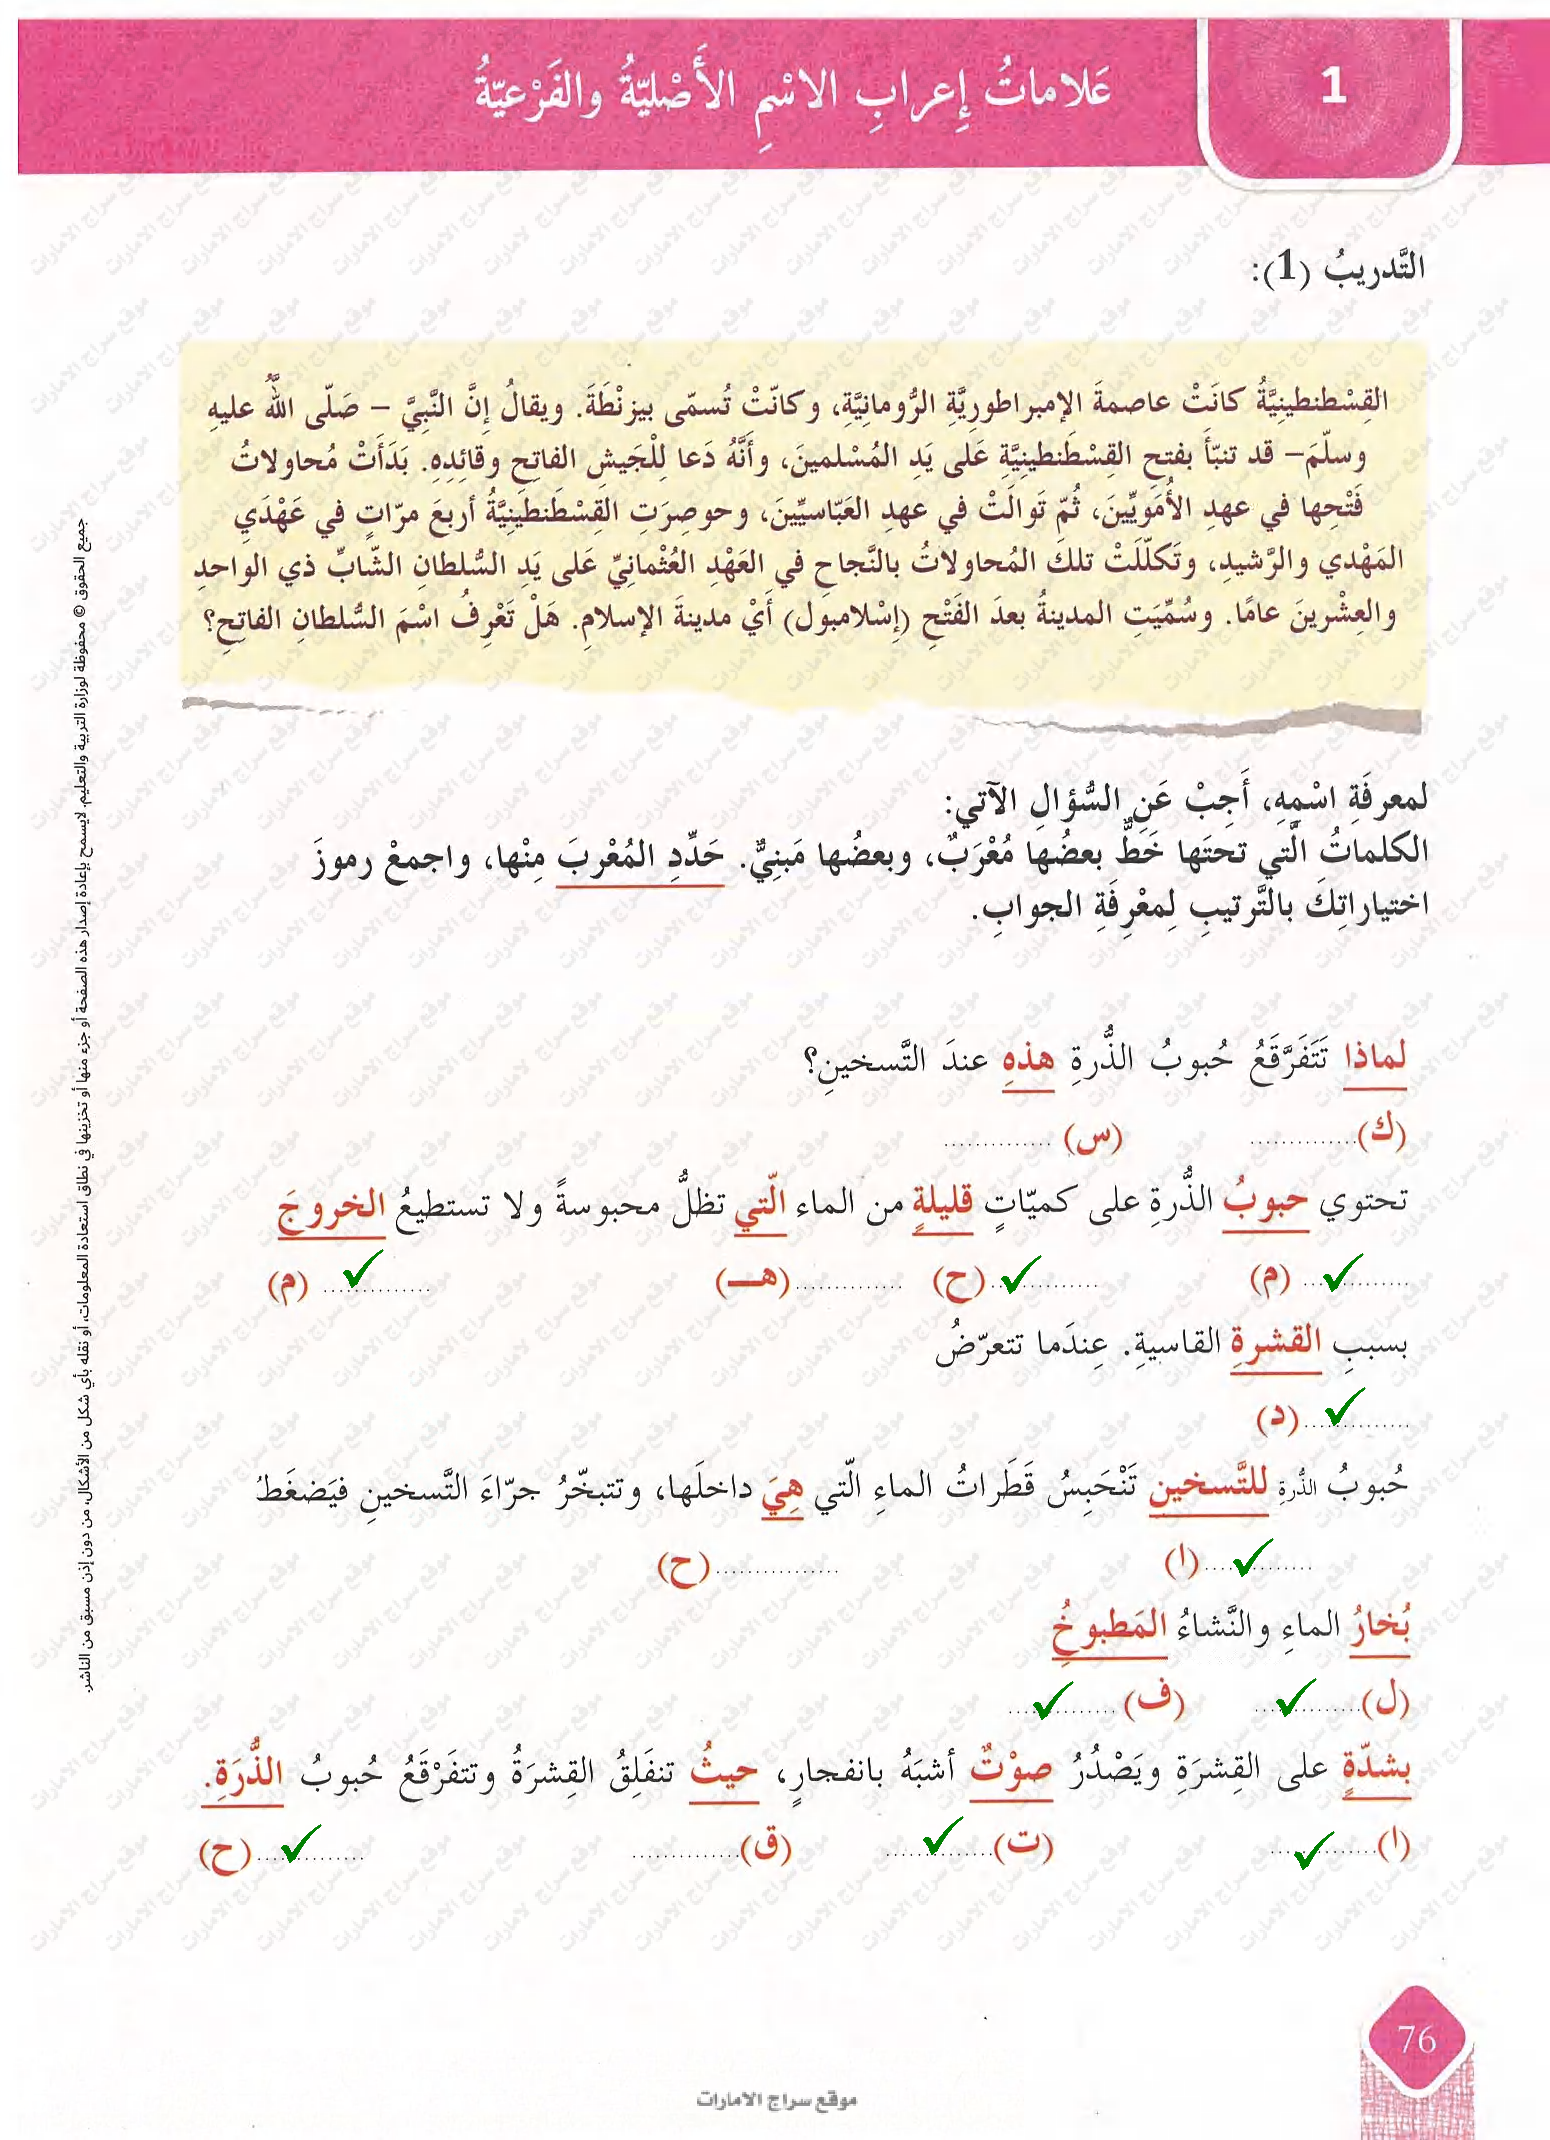 1
عَلاماتُ إِعرابِ الاسْمِ الأَصْليّةُ والفَرْعيّةُ
التَّدريبُ (1):
القِسْطنطينِيَّةُ كانَتْ عاصمةَ الإمبراطورِيَّةِ الرُّومانِيَّةِ، وكانّتْ تُسمّى بيزنْطَةَ. ويقالُ إنَّ النَّبِيَّ – صَلّى اللهُ عليهِ
وسلّمَ– قد تنبّأَ بفتحِ القِسْطَنطينِيَّةِ عَلى يَدِ المُسْلمينَ، وأنَّهُ دَعا لِلْجَيشِ الفاتحِ وقائِدِهِ. بَدَأَتْ مُحاولاتُ
فَتْحِها في عهدِ الأُمَويِّينَ، ثُمّ تَوالَتْ في عهدِ العَبّاسيِّينَ، وحوصِرَتِ القِسْطَنطينِيَّةُ أربعَ مرّاتٍ في عَهْدَيِ
المَهْدي والرَّشيدِ، وتَكلّلَتْ تلكَ المُحاولاتُ بالنَّجاحِ في العَهْدِ العُثْمانيِّ عَلى يَدِ السُّلطانِ الشّابِّ ذي الواحدِ
والعِشْرينَ عامًا. وسُمِّيَتِ المدينةُ بعدَ الفَتْحِ (إِسْلامبول) أيْ مدينةَ الإسلامِ. هَلْ تَعْرِفُ اسْمَ السُّلطانِ الفاتِحِ؟
لمعرفَةِ اسْمِهِ، أَجِبْ عَنِ السُّؤالِ الآتي:
الكلماتُ الَّتي تحتَها خَطٌّ بعضُها مُعْرَبٌ، وبعضُها مَبنِيٌّ. حَدِّدِ المُعْربَ مِنْها، واجمعْ رموزَ
اختياراتِكَ بالتَّرتيبِ لِمعْرِفَةِ الجوابِ.
لماذا تَتَفَرَّقَعُ حُبوبُ الذُّرةِ هذهِ عندَ التَّسخينِ؟
(ك).............. (س) ..............
تحتوي حبوبُ الذُّرةِ على كميّاتٍ قليلةٍ من الماء الّتي تظلُّ محبوسةً ولا تستطيعُ الخروجَ
.............. (م) ..............(ح) ..............(هـ) .............. (م)
بسببِ القشرةِ القاسيةِ. عِندَما تتعرّضُ
..............(د)
حُبوبُ الذُّرةِ للتَّسخين تَنْحَبِسُ قَطَراتُ الماءِ الّتي هِيَ داخلَها، وتتبخّرُ جرّاءَ التَّسخينِ فيَضغَطُ
..............(ا) ................(ح)
بُخارُ الماءِ والنَّشاءُ المَطبوخُ
(ل).............. (ف)..............
بشدّةٍ على القِشرَةِ ويَصْدُرُ صوْتٌ أشبَهُ بانفجارٍ، حيثُ تنفَلِقُ القِشرَةُ وتتفَرْقَعُ حُبوبُ الذُّرَةِ.
(ا).............. (ت).............. (ق).............. ..............(ح)
جميع الحقوق © محفوظة لوزارة التربية والتعليم. لايسمح بإعادة إصدار هذه الصفحة أو جزء منها أو تخزينها في نطاق استعادة المعلومات، أو نقله بأي شكل من الأشكال، من دون إذن مسبق من الناشر.
76
موقع سراج الامارات